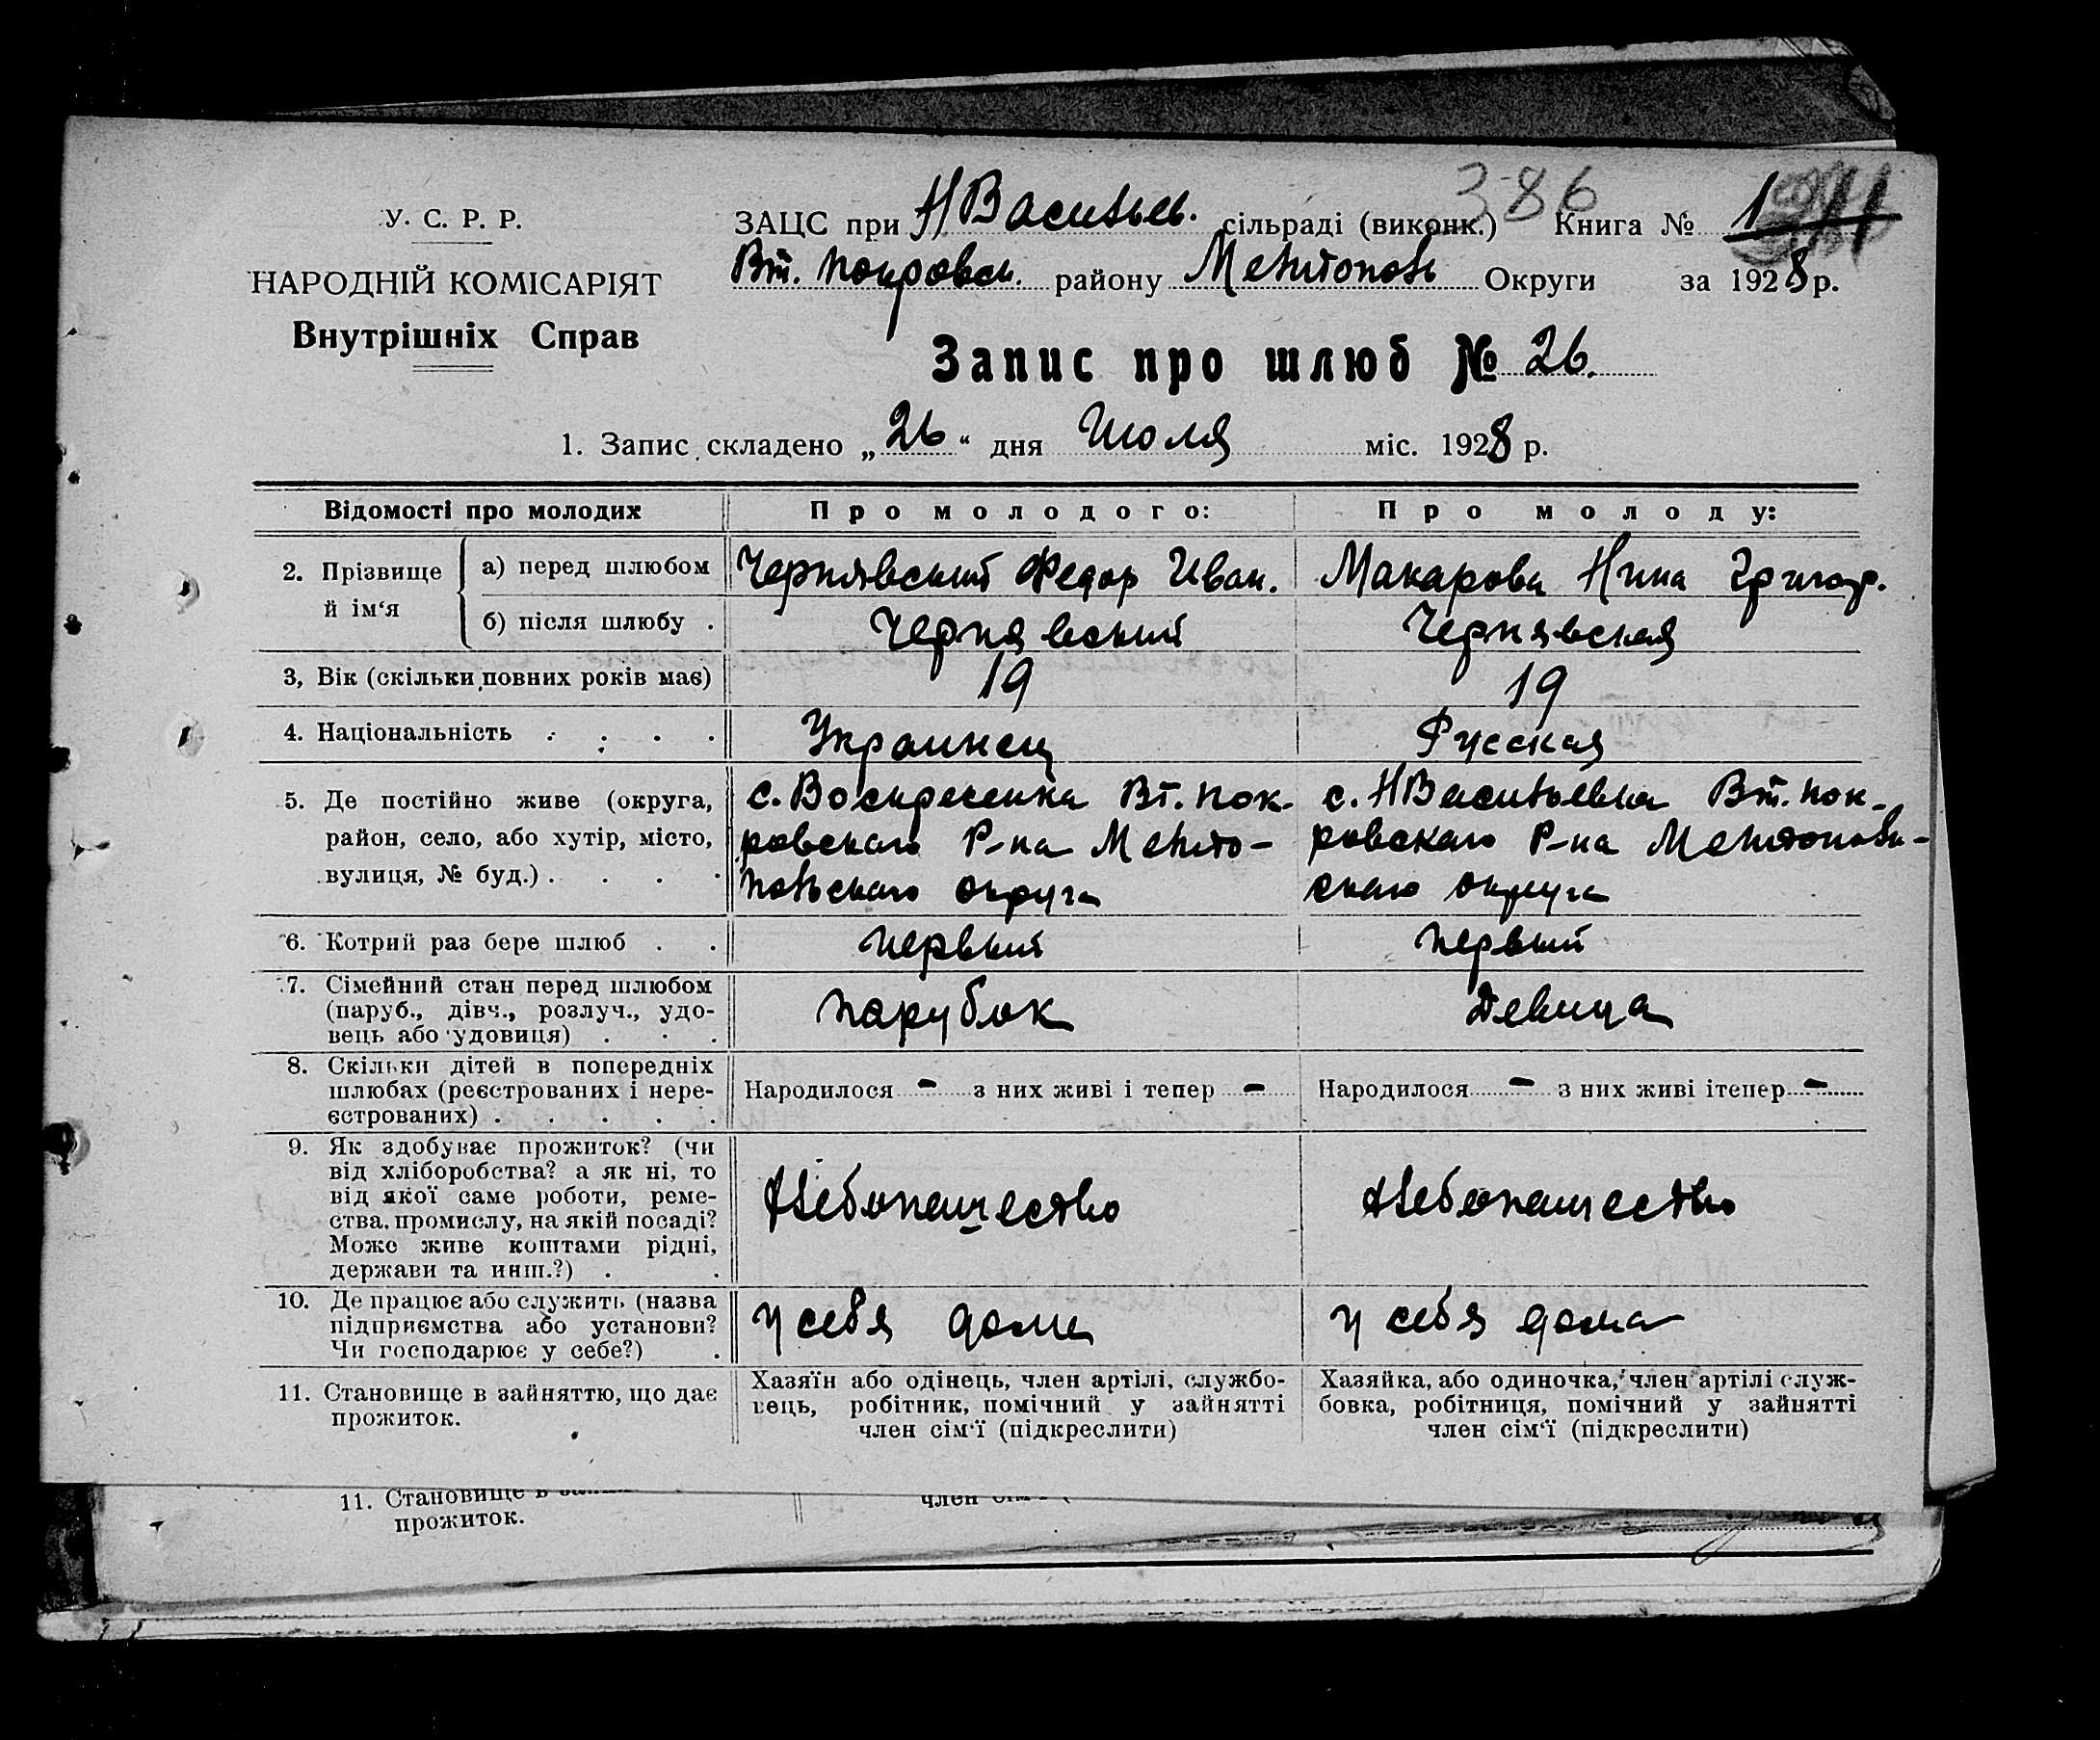 У. С. Р. Р.
НАРОДНІЙ КОМІСАРІЯТ
Внутрішніх Справ
386
ЗАЦС при НВасильев. сільраді (виконк.) Книга № 1
Вт. Покровск. району Мелитополь Округи за 1928 р.
Запис про шлюб № 26.
1. Запис складено „26“ дня Июля міс. 1928 р.
Відомості про молодих Про молодого: Про молоду:
2. Прізвище й ім‘я а) перед шлюбом Чернявський Федор Иван. Макарова Нина Григор.
б) після шлюбу . Чернявський Чернявская
3, Вік (скільки повних років має) 19 19
4. Національність . . . . Украинец Русская
5. Де постійно живе (округа, с. Воскресенка Вт. Пок- с. НВасильевка Вт. Пок-
район, село, або хутір, місто, ровскаго Р-на Мелито- ровскаго Р-на Мелитополь-
вулиця, № буд.) . . . . польскаго округа скаго округа
6. Котрий раз бере шлюб . . первый первый
7. Сімейний стан перед шлюбом
(паруб., дівч., розлуч., удо- парубок Девица
вець або удовиця) . . .
8. Скільки дітей в попередніх
шлюбах (реєстрованих і нере- Народилося - з них живі і тепер - Народилося - з них живі ітепер -
єстрованих) . . . . .
9. Як здобуває прожиток? (чи
від хліборобства? а як ні, то
від якої саме роботи, реме- Хлебопашество Хлебопашество
ства, промислу, на якій посаді?
Може живе коштами рідні,
держави та инш.?) . .
10. Де працює або служить (назва
підприємства або установи? у себя дома у себя дома
Чи господарює у себе?) .
11. Становище в зайняттю, що дає Хазяїн або одінець, член артілі, службо- Хазяйка, або одиночка, член артілі служ-
прожиток. вець, робітник, помічний у зайнятті бовка, робітниця, помічний у зайнятті
член сім‘ї (підкреслити) член сім‘ї (підкреслити)
11. Становище в
прожиток.
член